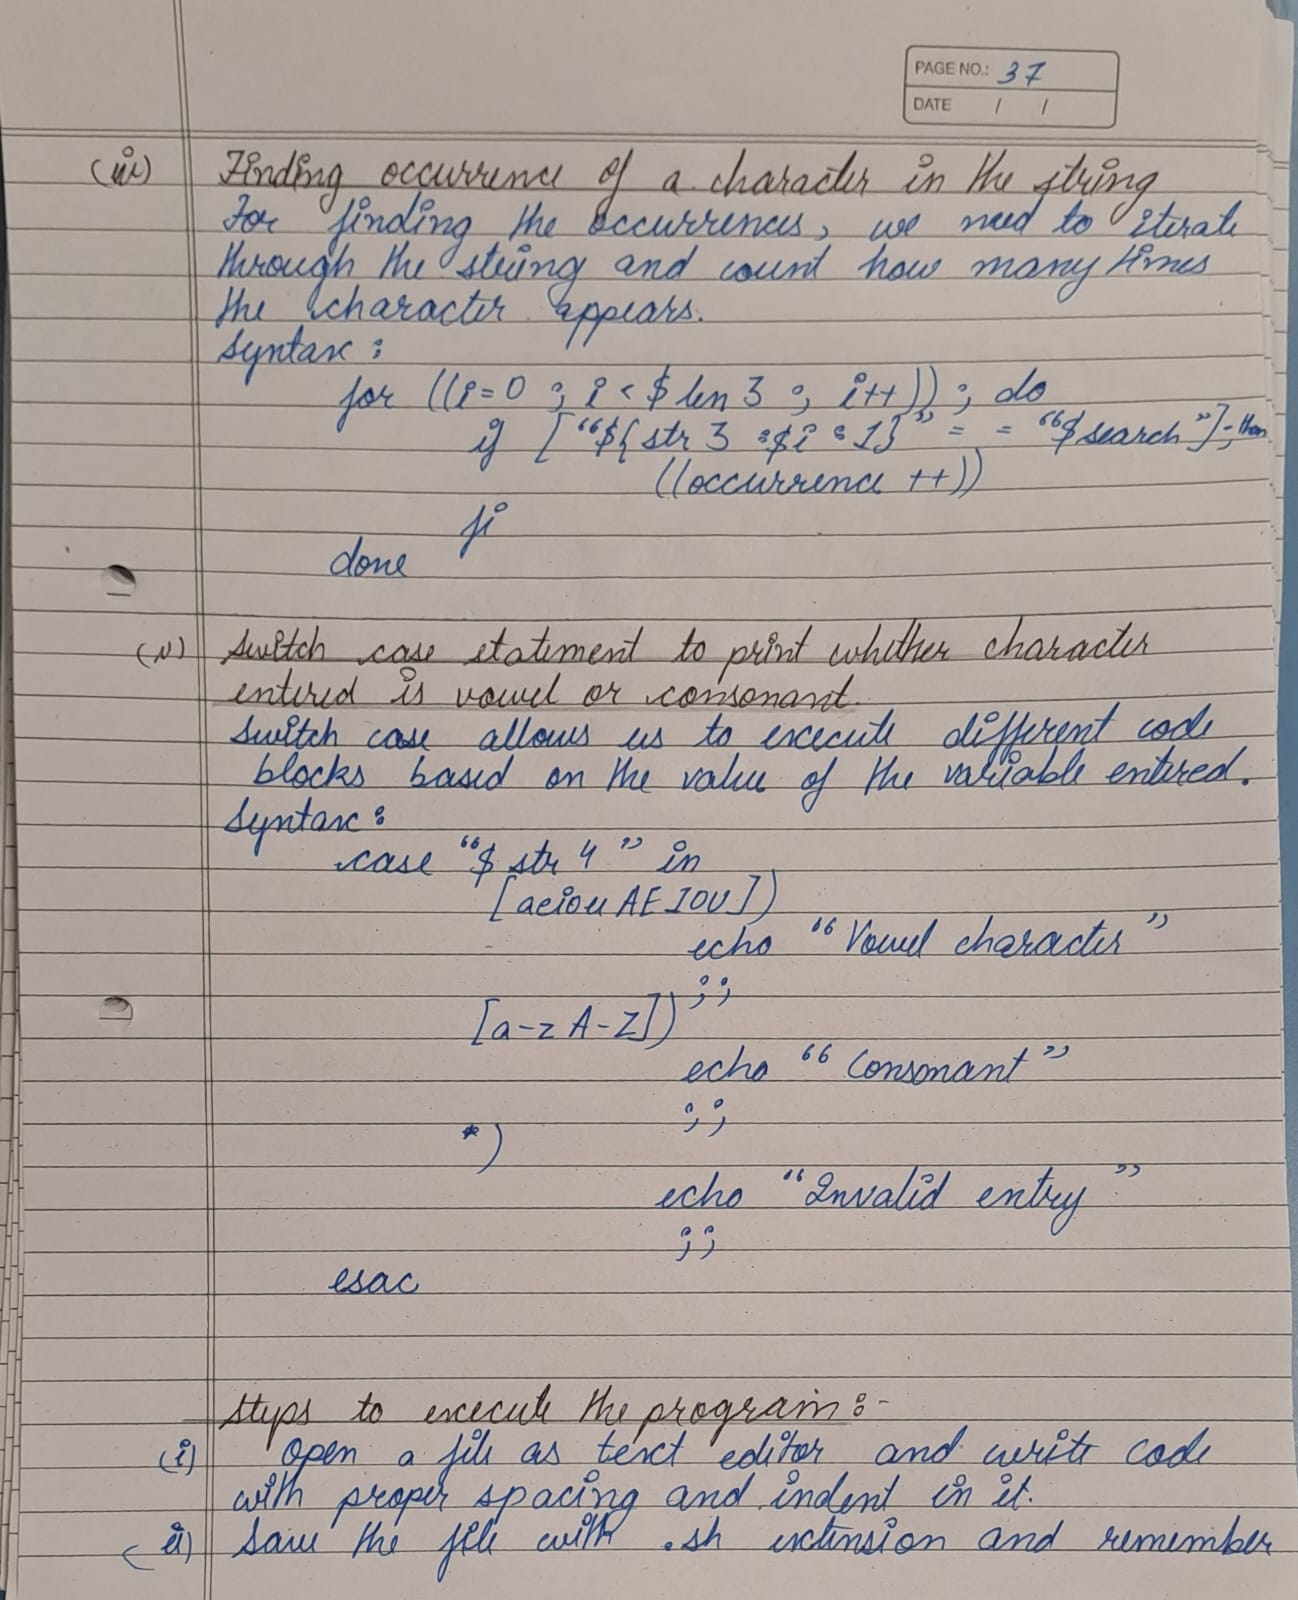 PAGE NO.: 37
DATE / /
(iv) Finding occurrence of a character in the string
For finding the occurrences, we need to iterate
through the string and count how many times
the character appears.
Syntax :
for ((i=0 ; i < $len3 ; i++)) ; do
if ["${str3 :$i :1}" = = "$search"] ; then
((occurrence ++))
fi
done
(v) Switch case statement to print whether character
entered is vowel or consonant.
Switch case allows us to execute different code
blocks based on the value of the variable entered.
Syntax :
case "$str4" in
[aeiouAEIOU])
echo "Vowel character"
;;
[a-zA-Z])
echo "Consonant"
;;
*)
echo "Invalid entry"
;;
esac
Steps to execute the program :-
(i) Open a file as text editor and write code
with proper spacing and indent in it.
(ii) Save the file with .sh extension and remember